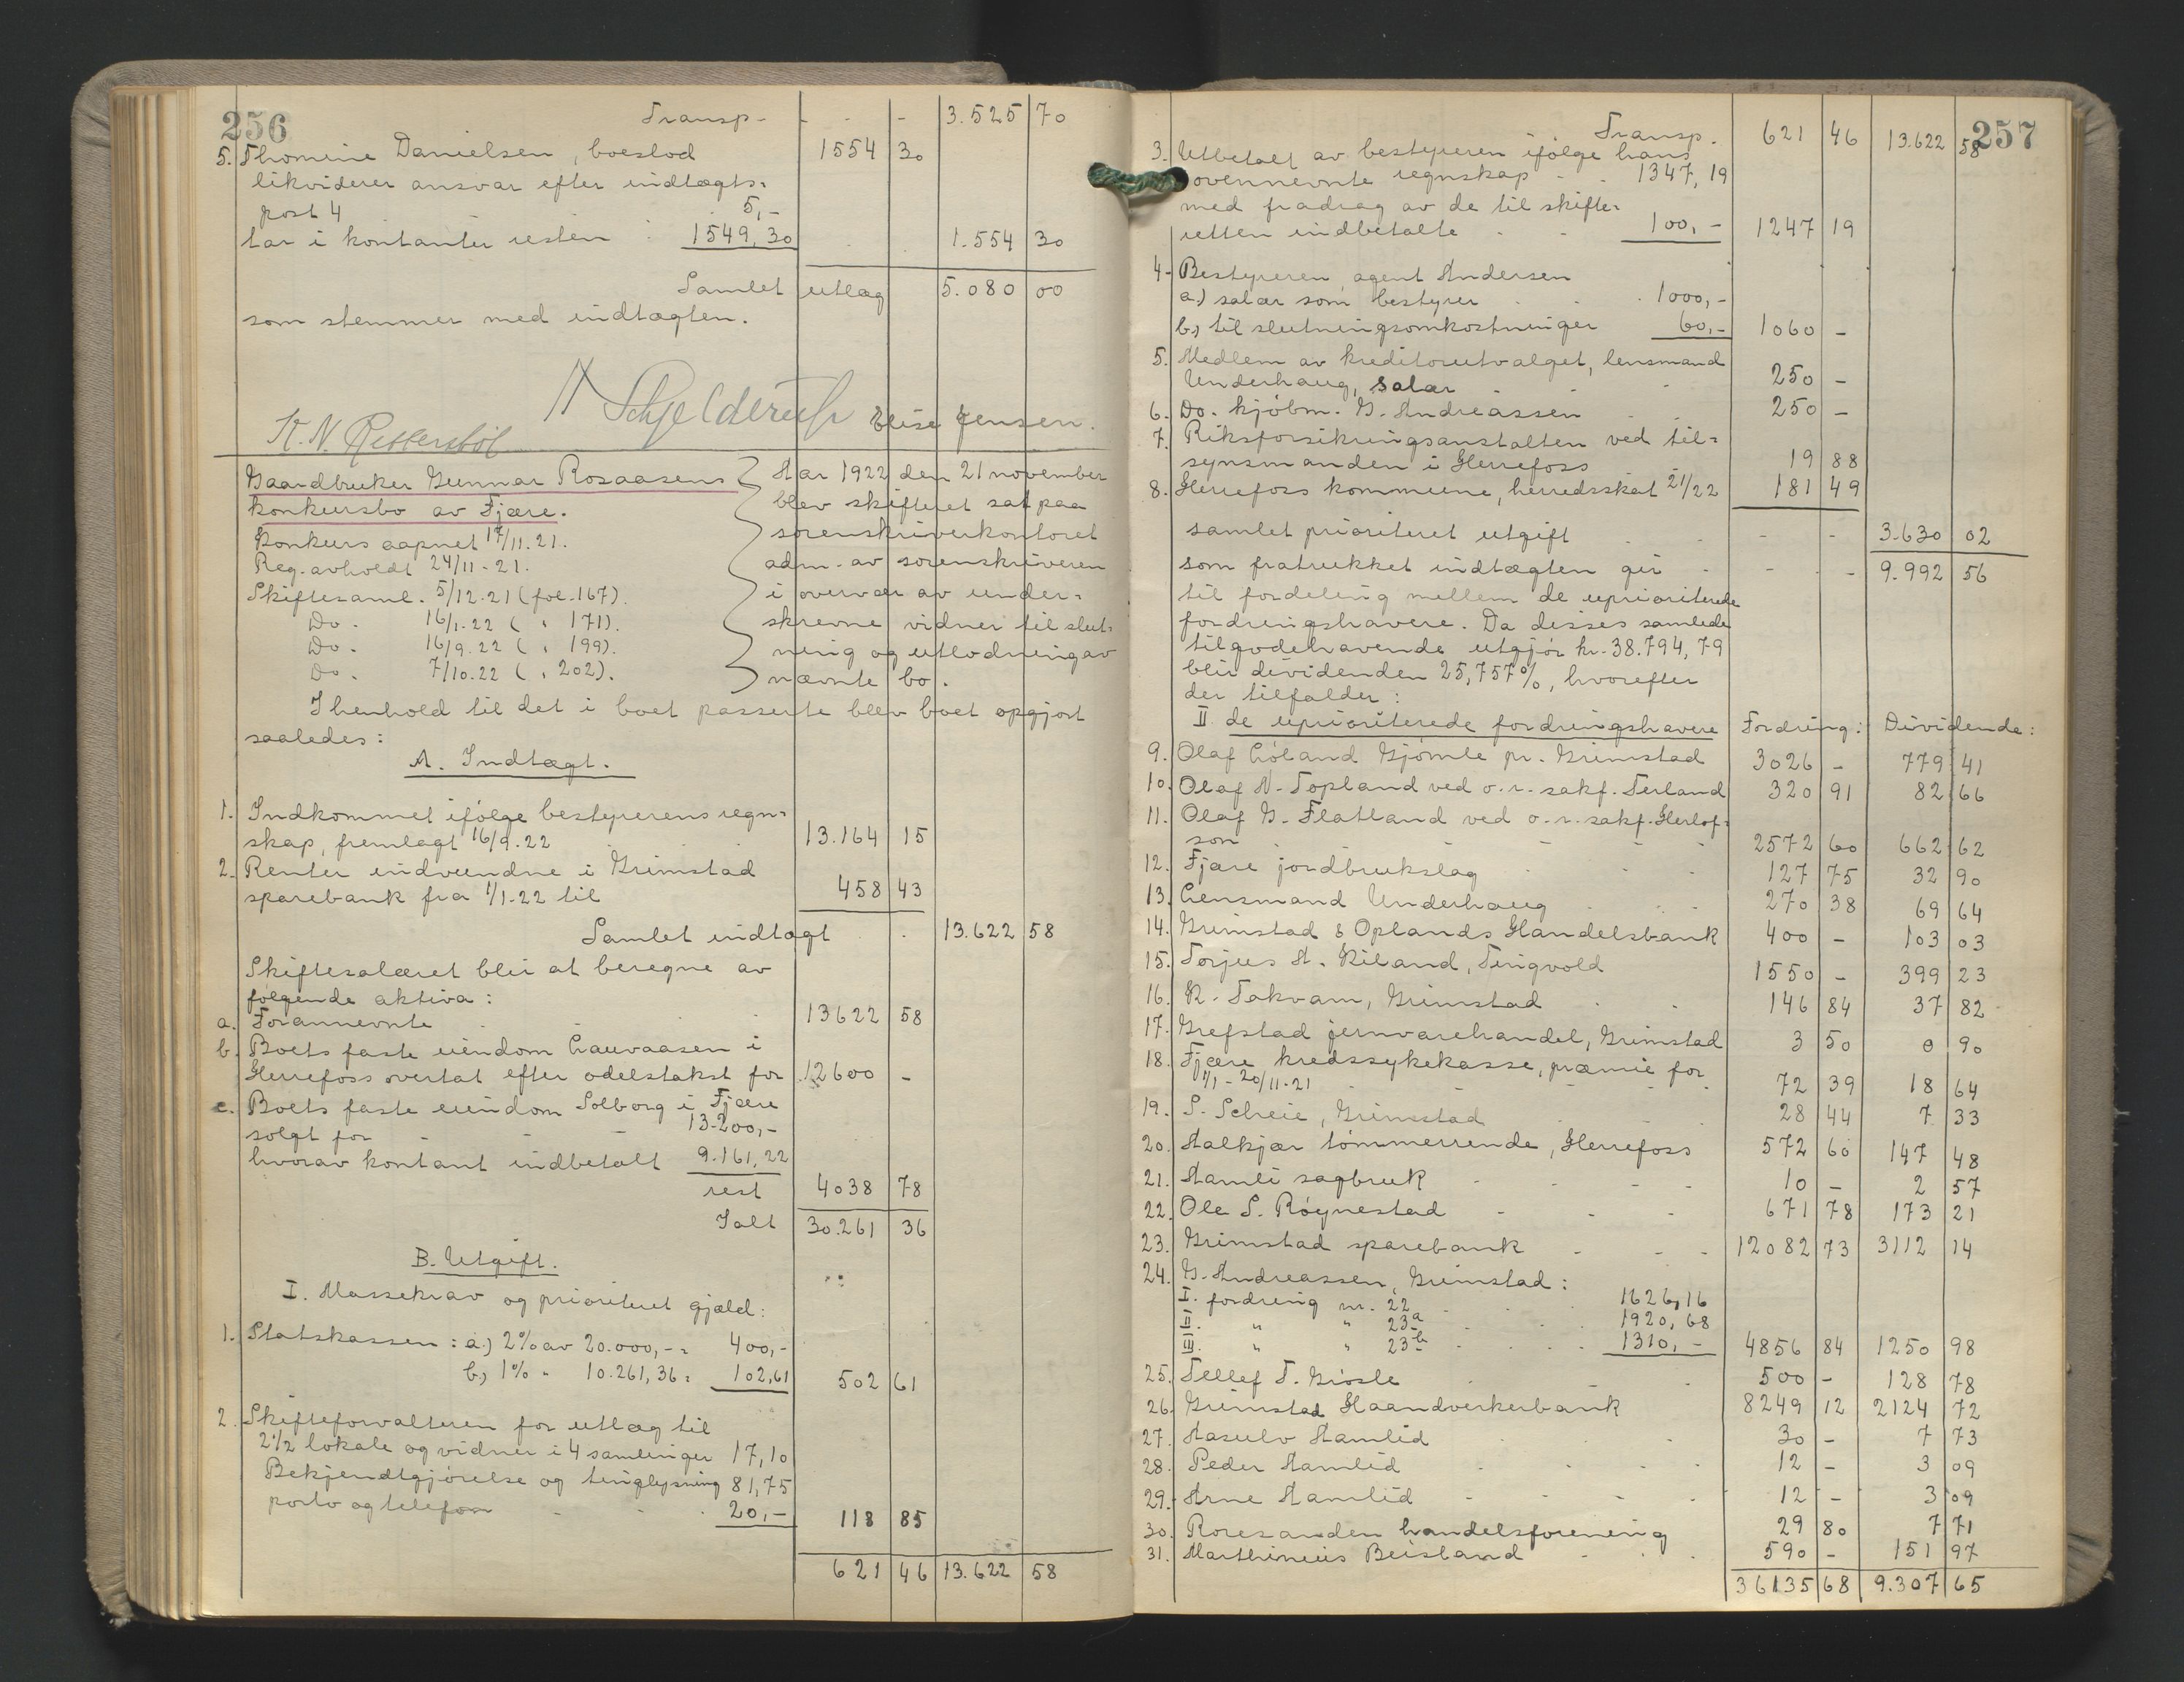 256
Transp - - - 3.525 70
5. Thomine Danielsen, boeslod 1554 30
likviderer ansvar efter indtægts=
post 4 5,-
tar i kontanter resten 1549,30 1.554 30
Samlet utlæg 5.080 00
som stemmer med indtægten.
N Schjelderup Elise Jensen.
K. N. Rettersbøl
Gaardbruker Gunnar Rosaasens
konkursbo av Fjære.
Konkurs aapnet 17/11.21.
Reg. avholdt 24/11-21.
Skiftesaml. 5/12.21 (fol. 167).
Do. 16/1.22 ( " 171).
Do. 16/9.22 ( " 199).
Do. 7/10.22 ( " 202).
Aar 1922 den 21 november
blev skifteret sat paa
sorenskriverkontoret
adm. av sorenskriveren
i overvær av under=
skrevne vidner til slut=
ning og utlodning av
nævnte bo.
I henhold til det i boet passerte blev boet opgjort
saaledes:
A. Indtægt.
1. Indkommet ifølge bestyrerens regn=
skap, fremlagt 16/9.22 13.164 15
2. Renter indvundne i Grimstad
sparebank fra 1/1-22 til 458 43
Samlet indtægt 13.622 58
Skiftesalæret blir at beregne av
følgende aktiva:
a. Forannevnte 13622 58
b. Boets faste eiendom Lauvaasen i
Herrefoss overtat efter odelstakst for 12600 -
c. Boets faste eiendom Solborg i Fjære
solgt for - - 13.200,-
hvorav kontant indbetalt 9.161,22
rest 4038 78
Ialt 30.261 36
B. Utgift.
I. Massekrav og prioritert gjæld:
1. Statskassen: a.) 2% av 20.000,- = 400,-
b.) 1% " 10.261,36 = 102,61 502 61
2. Skifteforvalteren for utlæg til
2 1/2 lokale og vidner i 4 samlinger 17,10
Bekjendtgjørelse og tinglysning 81,75
porto og telefon 20,- 118 85
621 46 13.622 58
257
Transp. 621 46 13.622 58
3. Utbetalt av bestyreren ifølge hans
ovennevnte regnskap - . 1347,19
med fradrag av de til skifte=
retten indbetalte - - 100,- 1247 19
4. Bestyreren, agent Andersen
a.) salær som bestyrer . . . 1000,-
b.) til slutningsomkostninger 60,- 1060 -
5. Medlem av kreditorutvalget, lensmand
Underhaug, salær - - - 250 -
6. Do. kjøbm. G. Andreassen . . 250 -
7. Riksforsikringsanstalten ved til=
synsmanden i Herrefoss 19 88
8. Herrefoss kommune, herredsskat 21/22 181 49
samlet prioritert utgift - - 3.630 02
som fratrukket indtægten gir - - - 9.992 56
til fordeling mellem de uprioriterede
fordringshavere. Da disses samlede
tilgodehavende utgjør kr. 38.794,79
blir dividenden 25,757%, hvorefter
der tilfalder:
II. de uprioriterede fordringshavere Fordring: Dividende:
9. Olaf Løland Gjømle pr. Grimstad 3026 - 779 41
10. Olaf N. Topland ved o.r.sakf. Terland 320 91 82 66
11. Olaf G. Flatland ved o.r.sakf. Herlof=
son - - - - 2572 60 662 62
12. Fjære jordbrukslag - - - 127 75 32 90
13. Lensmand Underhaug - - - 270 38 69 64
14. Grimstad & Oplands Handelsbank 400 - 103 03
15. Torjus A. Kiland, Tingvold 1550 - 399 23
16. K. Takvam, Grimstad . . 146 84 37 82
17. Grefstad jernvarehandel, Grimstad 3 50 0 90
18. Fjære kredssykekasse, præmie for
1/1 - 20/11-21 72 39 18 64
19. S. Scheie, Grimstad 28 44 7 33
20. Aalkjær tømmerrende, Herrefoss 572 60 147 48
21. Hamli sagbruk - - - - 10 - 2 57
22. Ole S. Røynestad - - - 671 78 173 21
23. Grimstad sparebank - - - 12082 73 3112 14
24. G. Andreassen, Grimstad:
I. fordring nr. 22 1626,16
II. " " 23a 1920,68
III. " " 23b 1310,- 4856 84 1250 98
25. Tellef T. Grosle - 500 - 128 78
26. Grimstad Haandverkerbank 8249 12 2124 72
27. Aasulv Hamlid 30 - 7 73
28. Peder Hamlid - - - 12 - 3 09
29. Arne Hamlid - - - - 12 - 3 09
30. Roresanden handelsforening 29 80 7 71
31. Marthinius Beisland - - - 590 - 151 97
36135 68 9.307 65